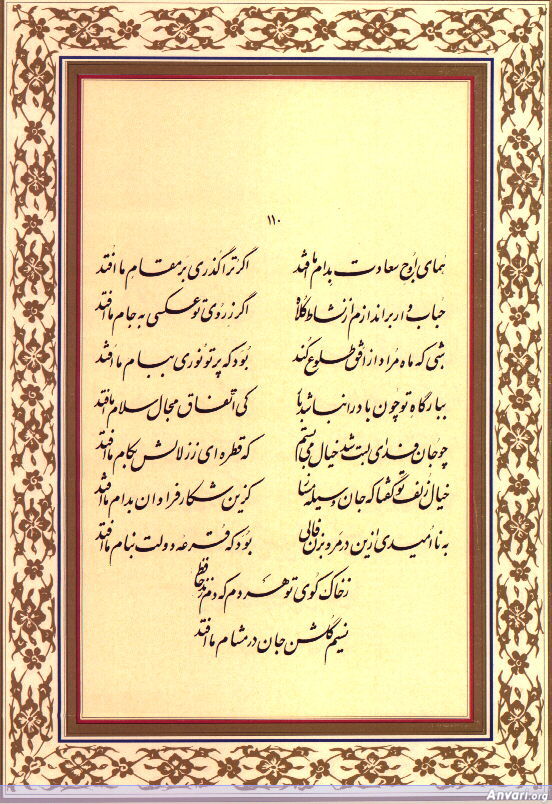 ۱۱۰
همای اوج سعادت بدام ما افتد اگر ترا گذری بر مقام ما افتد
حباب وار براندازم از نشاط کلاه اگر ز روی تو عکسی به جام ما افتد
شبی که ماه مراد از افق طلوع کند بود که پرتو نوری ببام ما افتد
ببارگاه تو چون باد را نباشد بار کی اتفاق مجال سلام ما افتد
چو جان فدای لبت شد خیال می‌بستم که قطره‌ای ز زلالش بکام ما افتد
خیال زلف تو گفتا که جان وسیله مساز کزین شکار فراوان بدام ما افتد
به ناامیدی ازین در مرو بزن فالی بود که قرعه دولت بنام ما افتد
ز خاک کوی تو هر دم که دم زند حافظ
نسیم گلشن جان در مشام ما افتد
Anvari.org